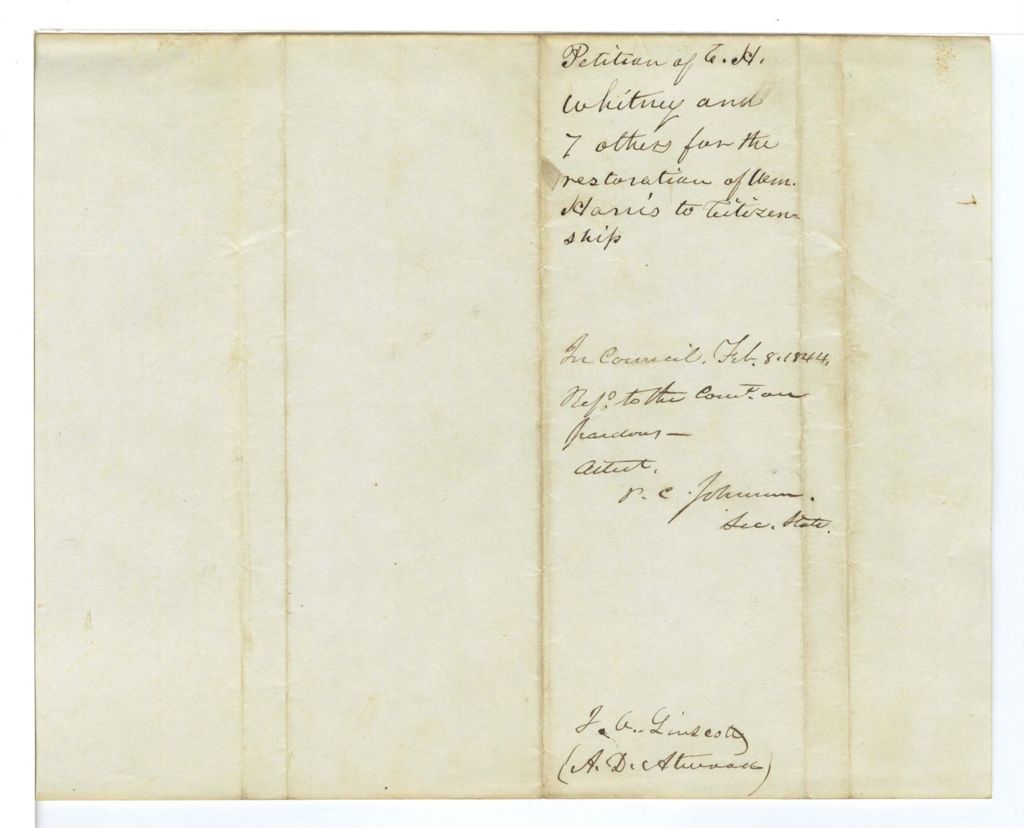 Petition of C. H.
Whitney and
7 others for the
restoration of Wm.
Harris to Citizen-
ship
In Council, Feb. 8. 1844.
Refd. to the Comt. on
pardons—
Attest.
P. C. Johnson.
Sec. State.
J. A. Linscott
(A. D. Atwood)